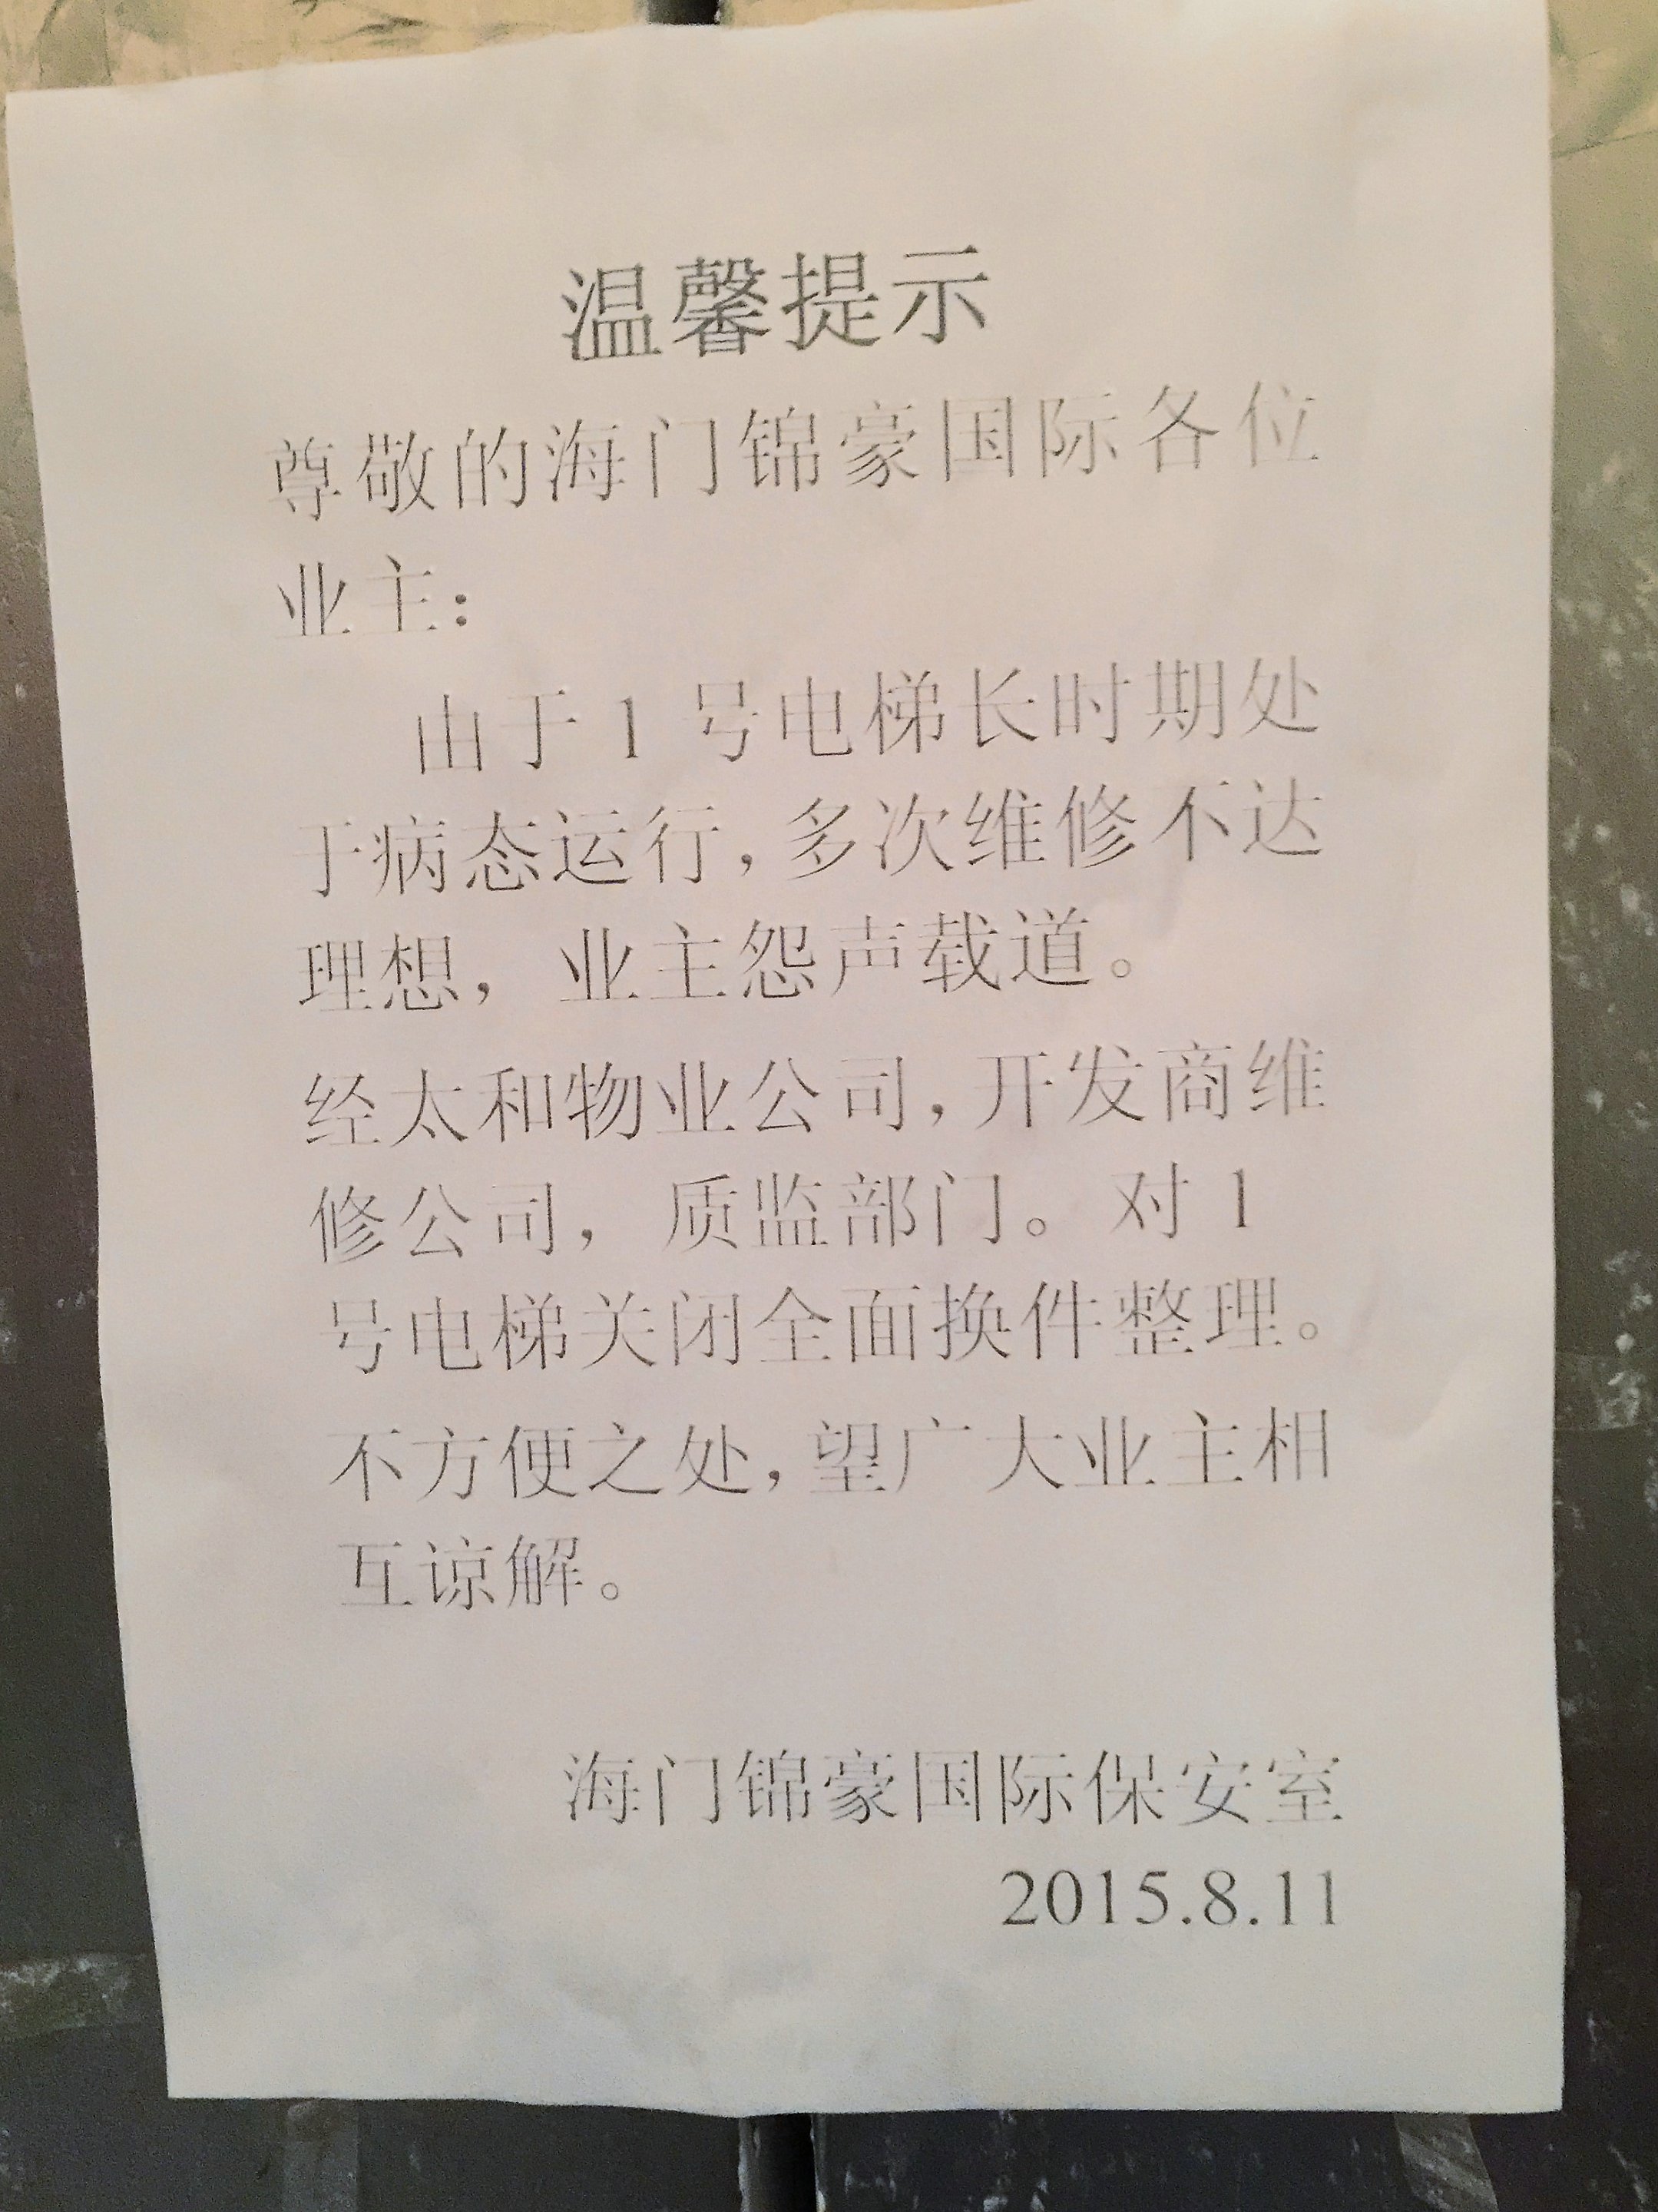 温馨提示
尊敬的海门锦豪国际各位
业主：
由于1号电梯长时期处
于病态运行，多次维修不达
理想，业主怨声载道。
经太和物业公司，开发商维
修公司，质监部门。对1
号电梯关闭全面换件整理。
不方便之处，望广大业主相
互谅解。
海门锦豪国际保安室
2015.8.11